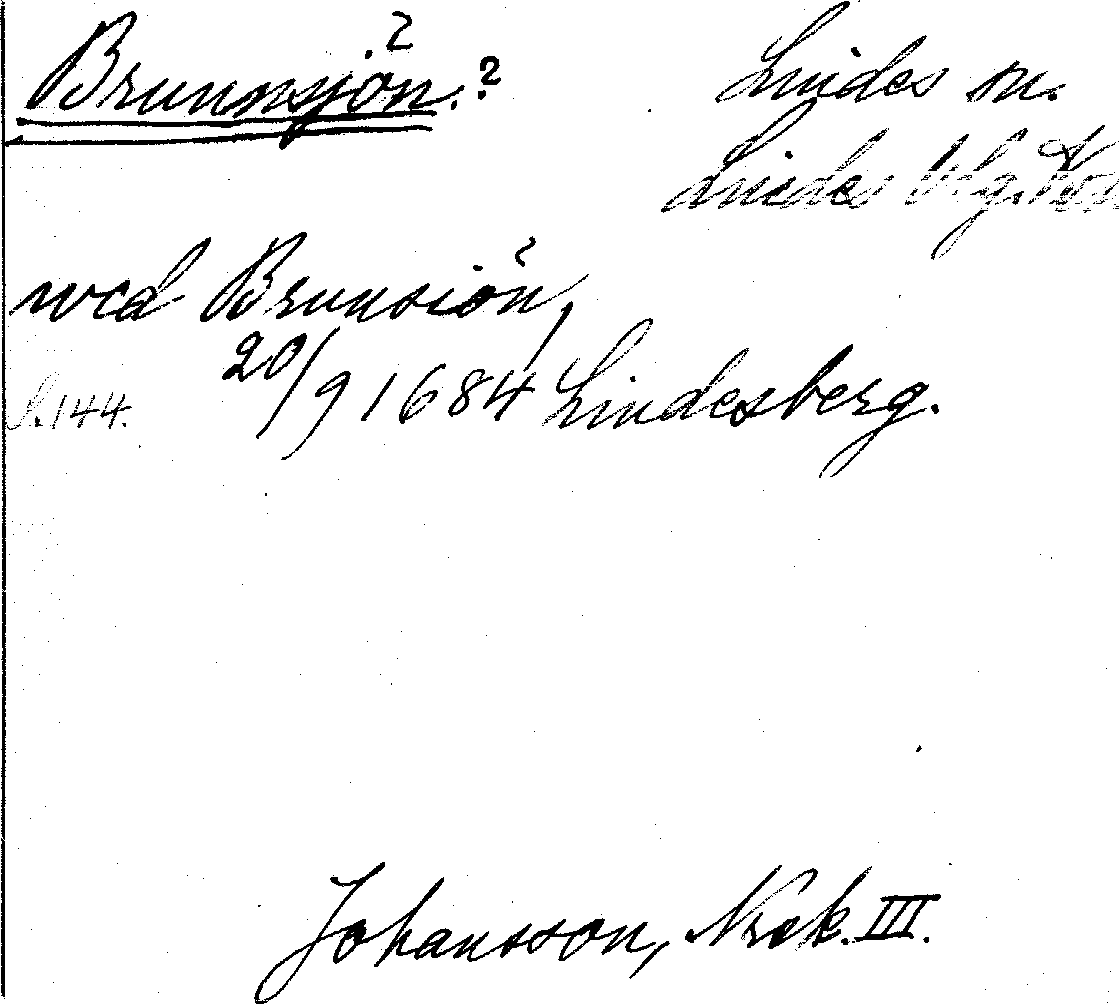 Brunnsjön.?
Lindes sn.
Lindes
wed Brunsiön,
20/9 1684 Lindesberg.
S.144.
Johansson, III.